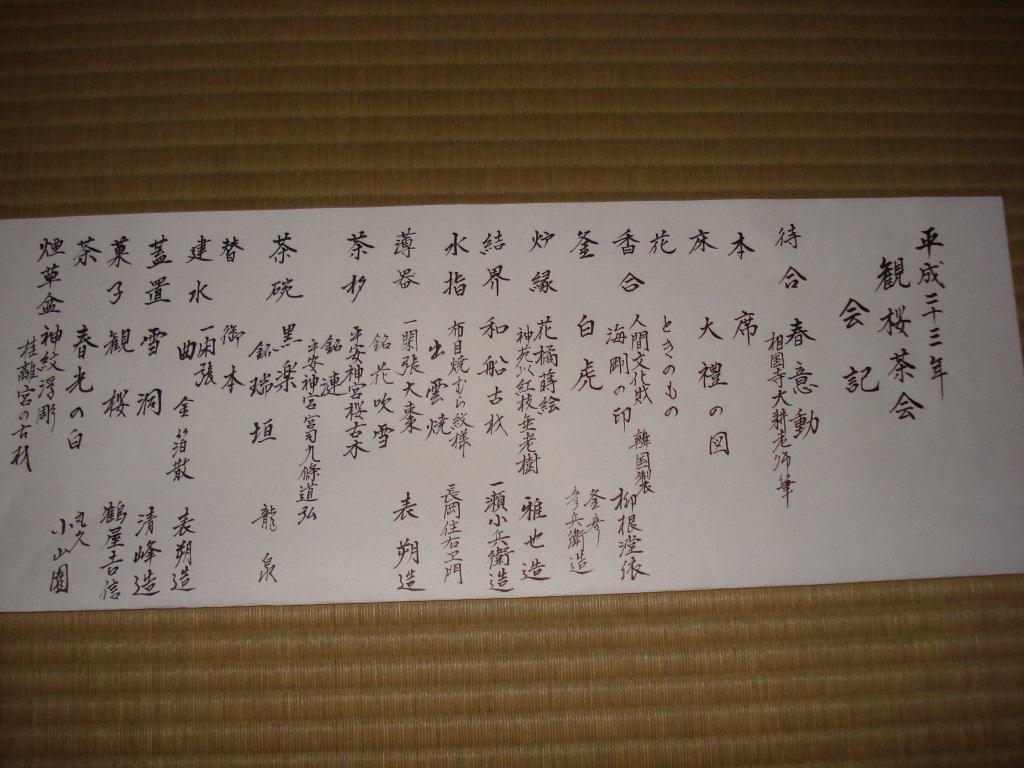 平成二十三年
観桜茶会
会記
待合 春意動
相国寺大耕老師筆
本席
床 大禮の図
花 ときのもの
香合 人間文化財 韓国製
海剛の印 柳根瀅依
釜 白虎
造
炉縁 花橘蒔絵
神苑八紅枝垂老樹 雅也造
結界 和船古材 一瀬小兵衛造
水指 布目焼むら紋様 長岡住右ヱ門
出雲焼
薄器 一閑張大棗 表朔造
銘花吹雪
茶杓 平安神宮桜古木
銘 連
平安神宮宮司九條道弘
茶碗 黒楽
銘瑞垣 龍泉
替 御本
建水 一閑張
曲 金箔散 表朔造
蓋置 雪洞 清峰造
菓子 観桜 鶴屋吉信
茶 春光の白 丸久
小山園
煙草盆 神紋浮彫
桂離宮の古材